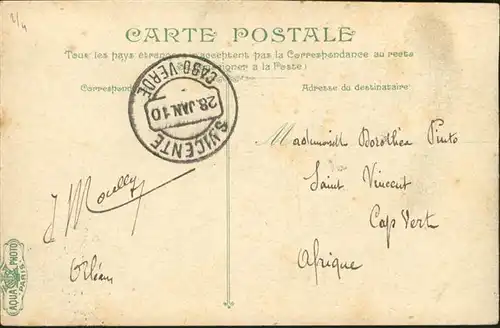 2/4
CARTE POSTALE
Tous les pays étrangers n'acceptent pas la Correspondance au recto
(Se renseigner a la Poste)
Correspond
Adresse du destinataire
S. VICENTE
CABO-VERDE
28 JAN. 10
Mademoiselle Dorothea Pinto
Saint Vincent
Cap Vert
Afrique
Orléans
AQUA PHOTO
PARIS